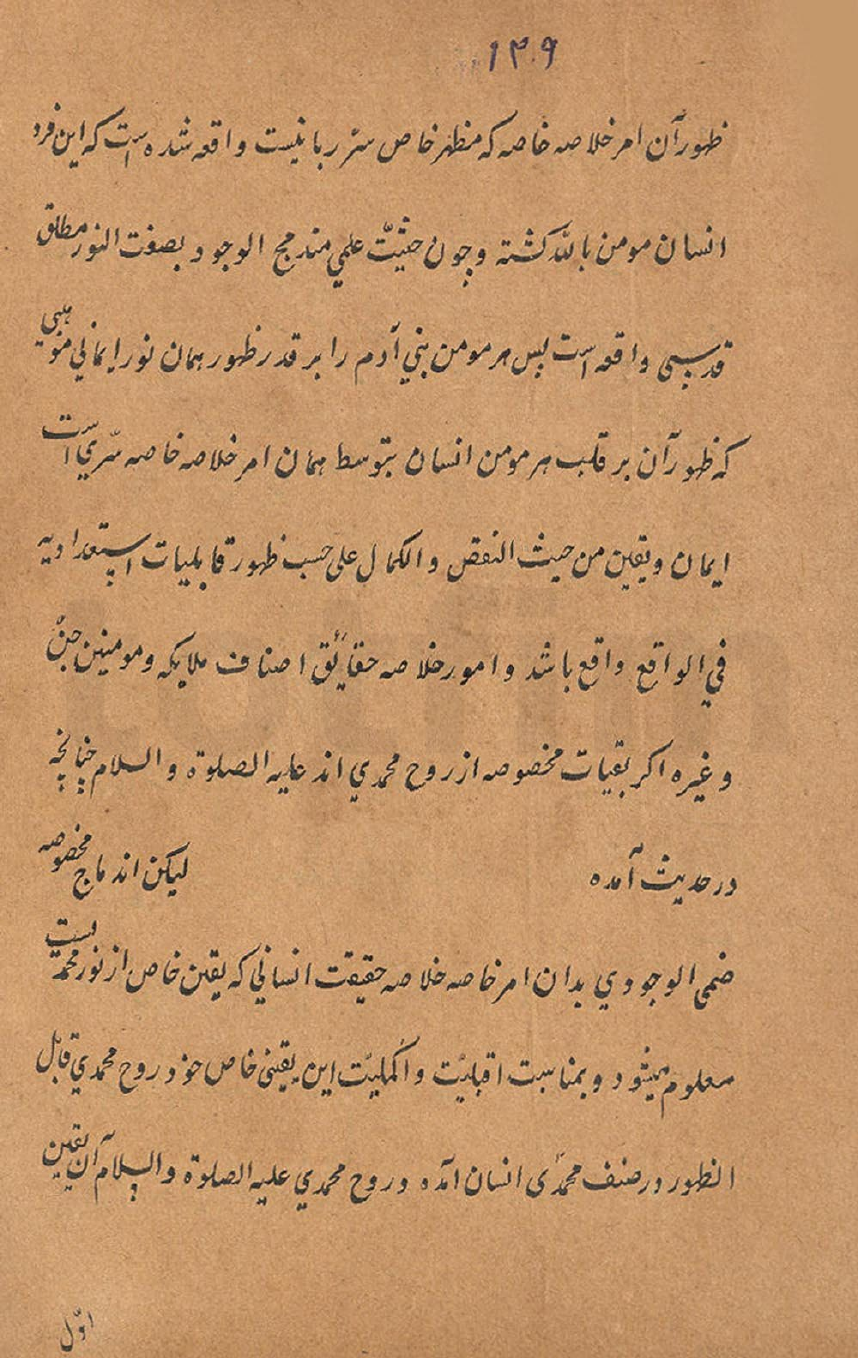 ۱۴۰۹
ظهور آن امر خلاصه خاصه که مظهر خاص سرّ ربانیست واقعه شده است که این فرد
انسان مومن بالله کشته و چون حیثیّت علمي مندمج الوجود بصفت النور مطلق
قدسی واقعه است پس هر مومن بني آدم را بر قدر ظهور همان نور ایماني موهبی
که ظهور آن بر قلب هر مومن انسان بتوسط همان امر خلاصه خاصه سرّي است
ایمان و یقین من حیث النقص والکمال علی حسب ظهور قابلیات استعدادیه
في الواقع واقع باشد و امور خلاصه حقائق اصناف ملایکه و مومنین جنّ
و غیره اکر بقیات مخصوصه از روح محمدي اند علیه الصلوة والسلام چنانچه
در حدیث آمده لیکن اندماج مخصوصه
ضمی الوجودي بدان امر خاصه خلاصه حقیقت انساني که یقین خاص از نور محمدیست
معلوم میشود و بمناسبت اقبلیّت و اکملیّت این یقینی خاص خود روح محمدي قابل
الظهور در صنف محمدی انسان آمده و روح محمدي علیه الصلوة والسلام آن یقین
اوّل